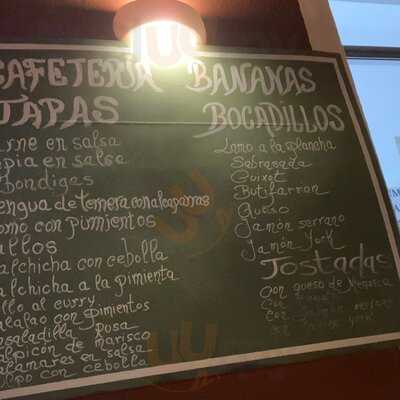 CAFETERIA BANANAS
TAPAS
rne en salsa
pia en salsa
bondigas
engua de ternera con alcaparras
omo con pimientos
allos
alchicha con cebolla
alchicha a la pimienta
llo al curry
alao con pimientos
nsaladilla Rusa
alpicón de marisco
alamares en salsa
lpo con cebolla
BOCADILLOS
Lomo a la plancha
Sobrasada
Cuixot
Butifarron
Queso
Jamón serrano
Jamón York
Tostadas
con queso de Menorca
con
con Jamón serrano
con Jamón York